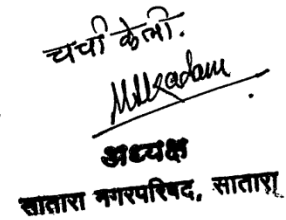 चर्चा केली.
M.H.Kadam
अध्यक्ष
सातारा नगरपरिषद, सातारा